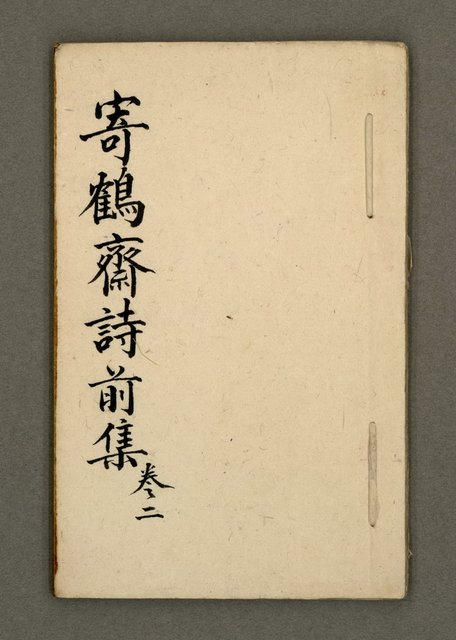 寄鶴齋詩前集
卷二